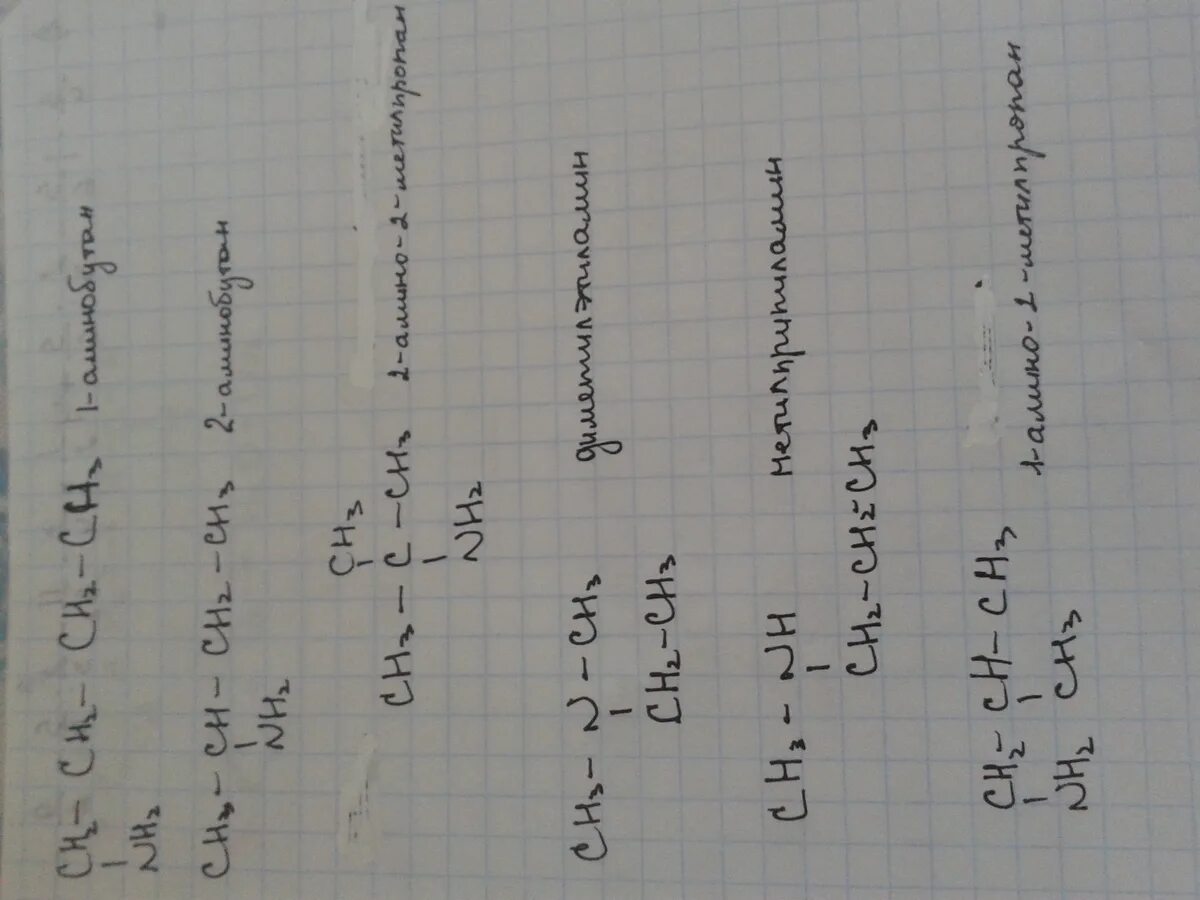 CH₂ – CH₂ – CH₂ – CH₃ 1-аминобутан
NH₂
CH₃ – CH – CH₂ – CH₃ 2-аминобутан
NH₂
CH₃
CH₃ – C – CH₃ 2-амино-2-метилпропан
NH₂
CH₃ – N – CH₃ диметилэтиламин
CH₂ – CH₃
CH₃ – NH метилпрупиламин
CH₂ – CH₂ – CH₃
CH₂ – CH – CH₃ 1-амино-2-метилпропан
NH₂ CH₃